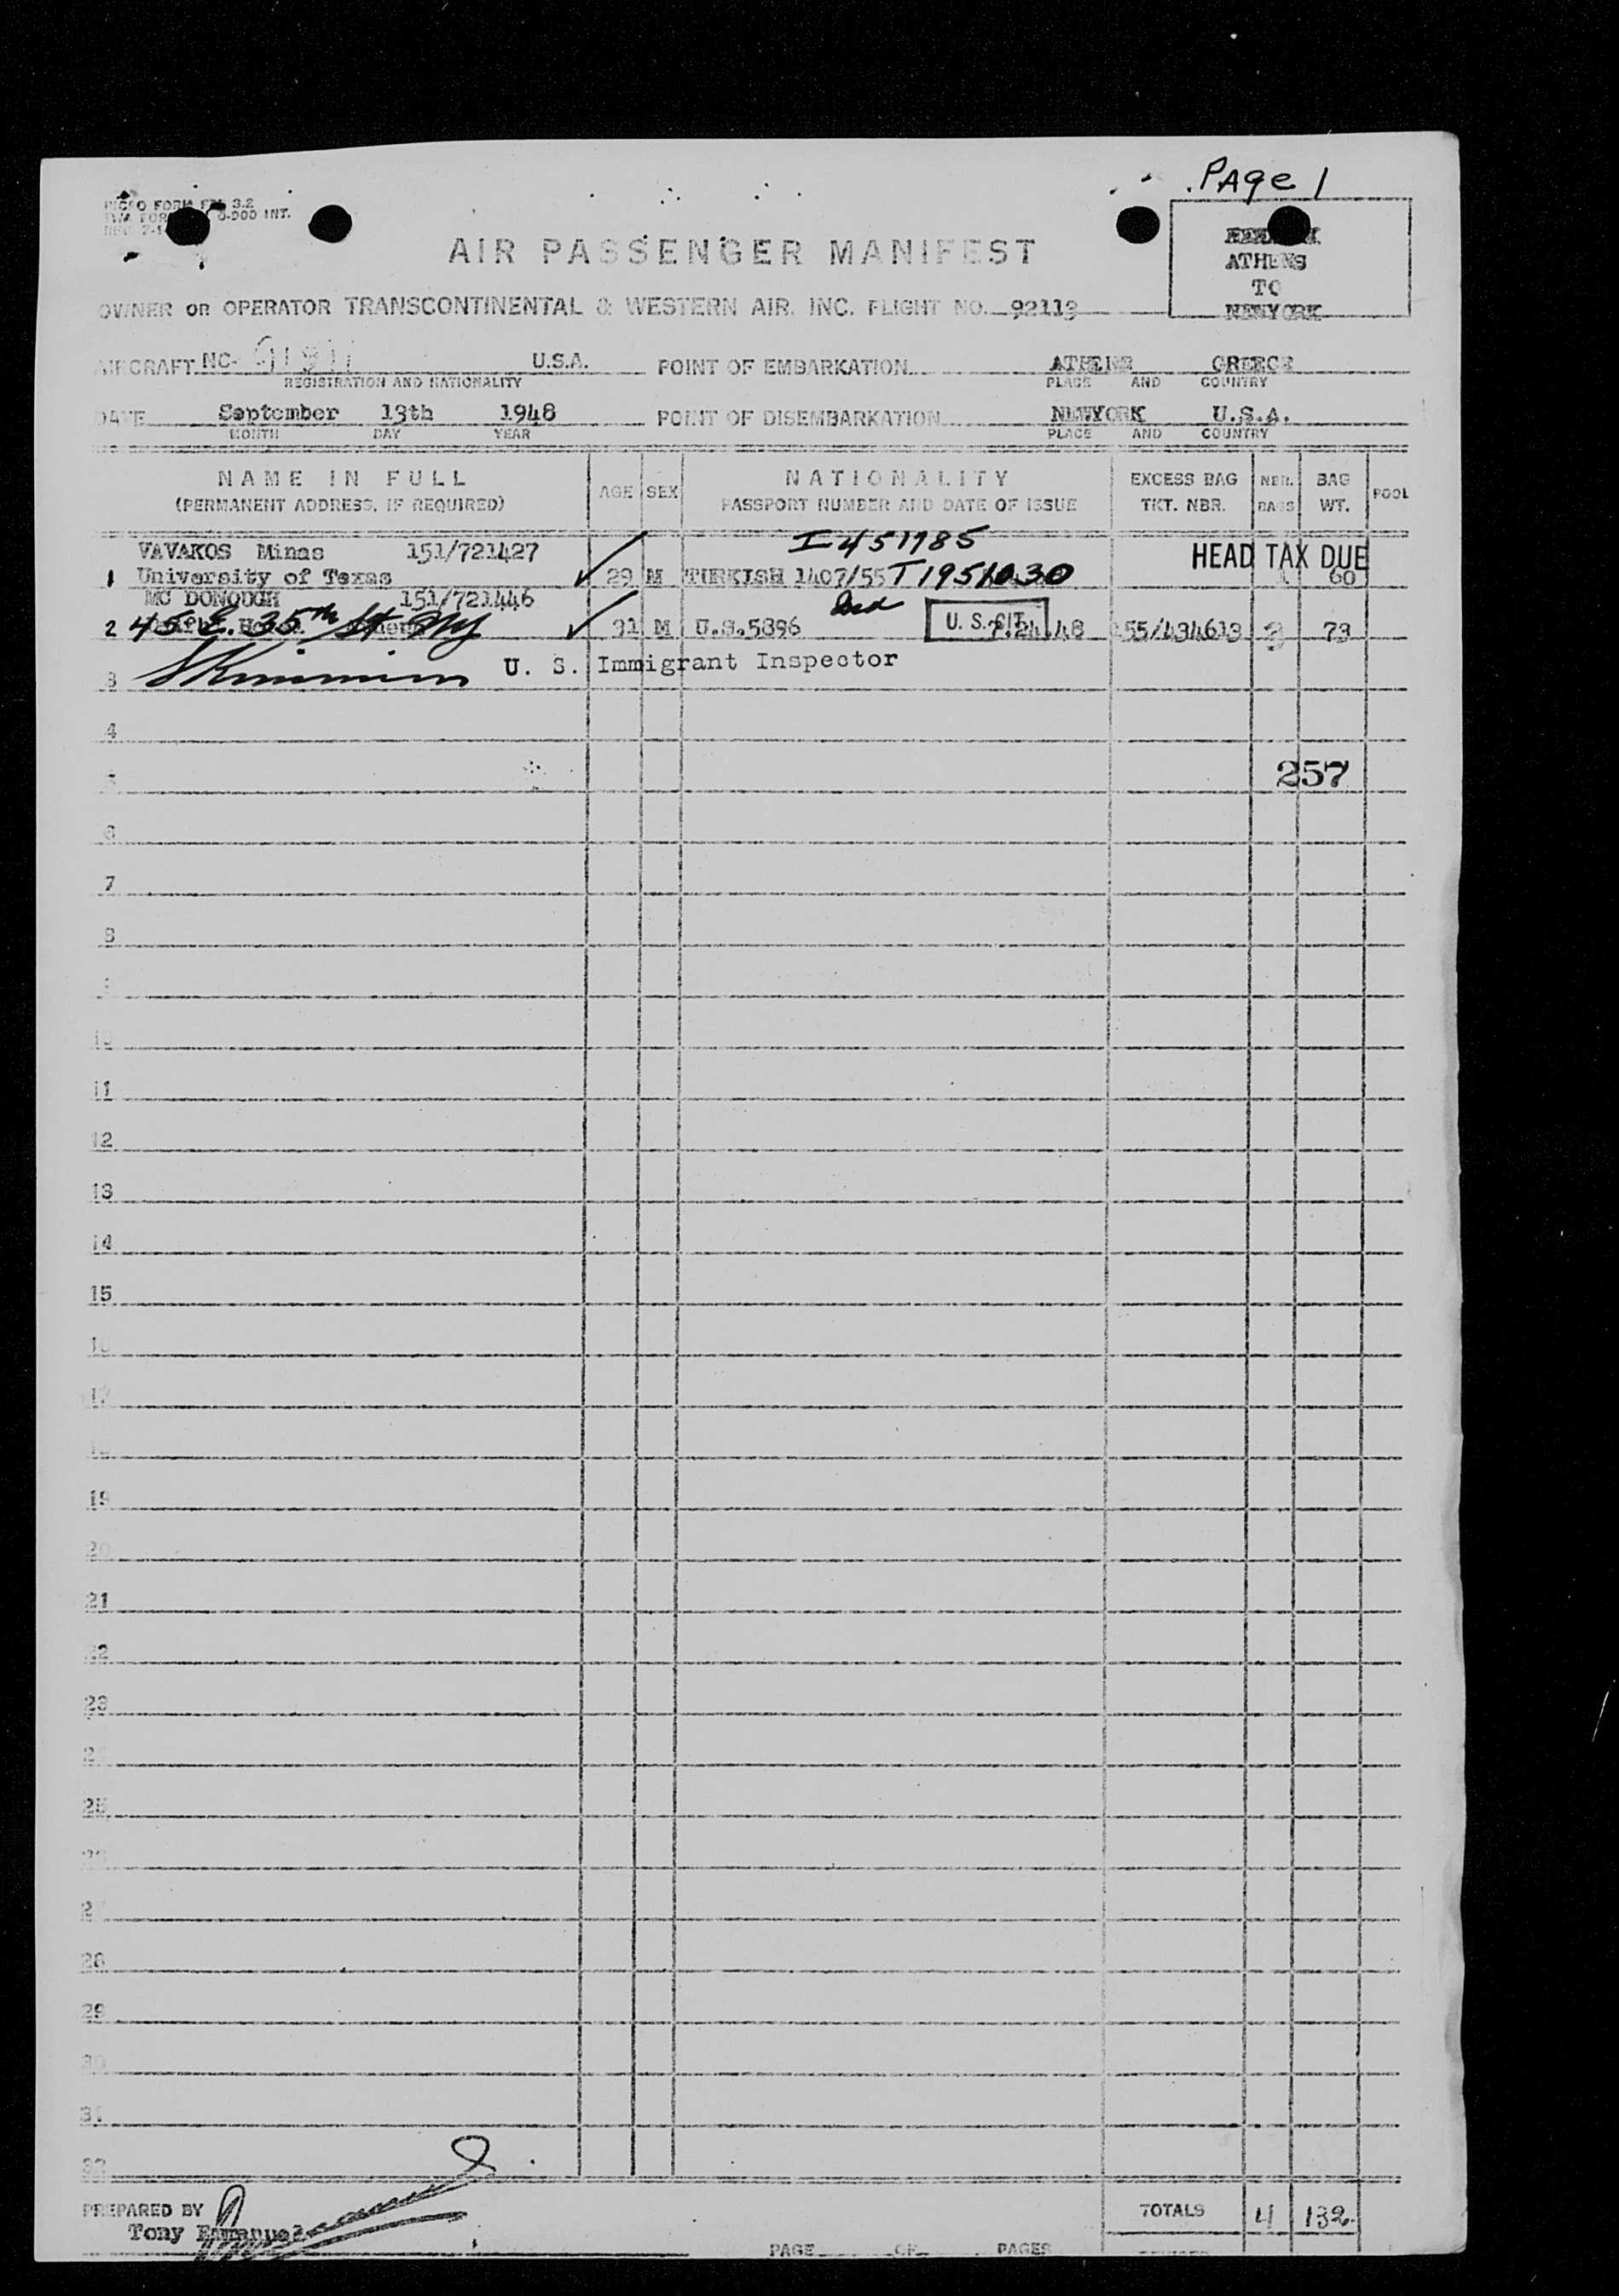 PAge 1
3.2
INT.
ATHENS
TO
NEWYORK
AIR PASSENGER MANIFEST
OWNER OR OPERATOR TRANSCONTINENTAL & WESTERN AIR, INC. FLIGHT NO. 92113
AIRCRAFT NC- U.S.A. POINT OF EMBARKATION ATHENS GREECE
REGISTRATION AND NATIONALITY PLACE AND COUNTRY
DATE September 13th 1948 POINT OF DISEMBARKATION NEWYORK U.S.A.
MONTH DAY YEAR PLACE AND COUNTRY
NAME IN FULL AGE SEX NATIONALITY EXCESS BAG NBR. BAG POOL
(PERMANENT ADDRESS, IF REQUIRED) PASSPORT NUMBER AND DATE OF ISSUE TKT. NBR. BAGS WT.
VAVAKOS Minas 151/721427 I-451985 HEAD TAX DUE
1 University of Texas 29 M TURKISH 1407/55 T1951030 1 60
MC DONOUGH 151/721446
2 45 E. 35th St NY 31 M U.S.5896 U. S. CIT. 7.24.48 155/434613 3 73
3 U. S. Immigrant Inspector
4
5 257
6
7
8
9
10
11
12
13
14
15
16
17
18
19
20
21
22
23
24
25
26
27
28
29
30
31
32
PREPARED BY TOTALS 4 132
Tony Emmanuel
PAGE OF PAGES